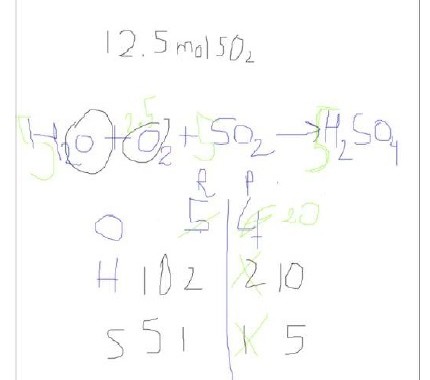 12.5 mol SO2
5 H2O + 2.5 O2 + 5 SO2 → 5 H2SO4
R P
O 5 4 20
H 10 2 2 10
S 5 1 1 5